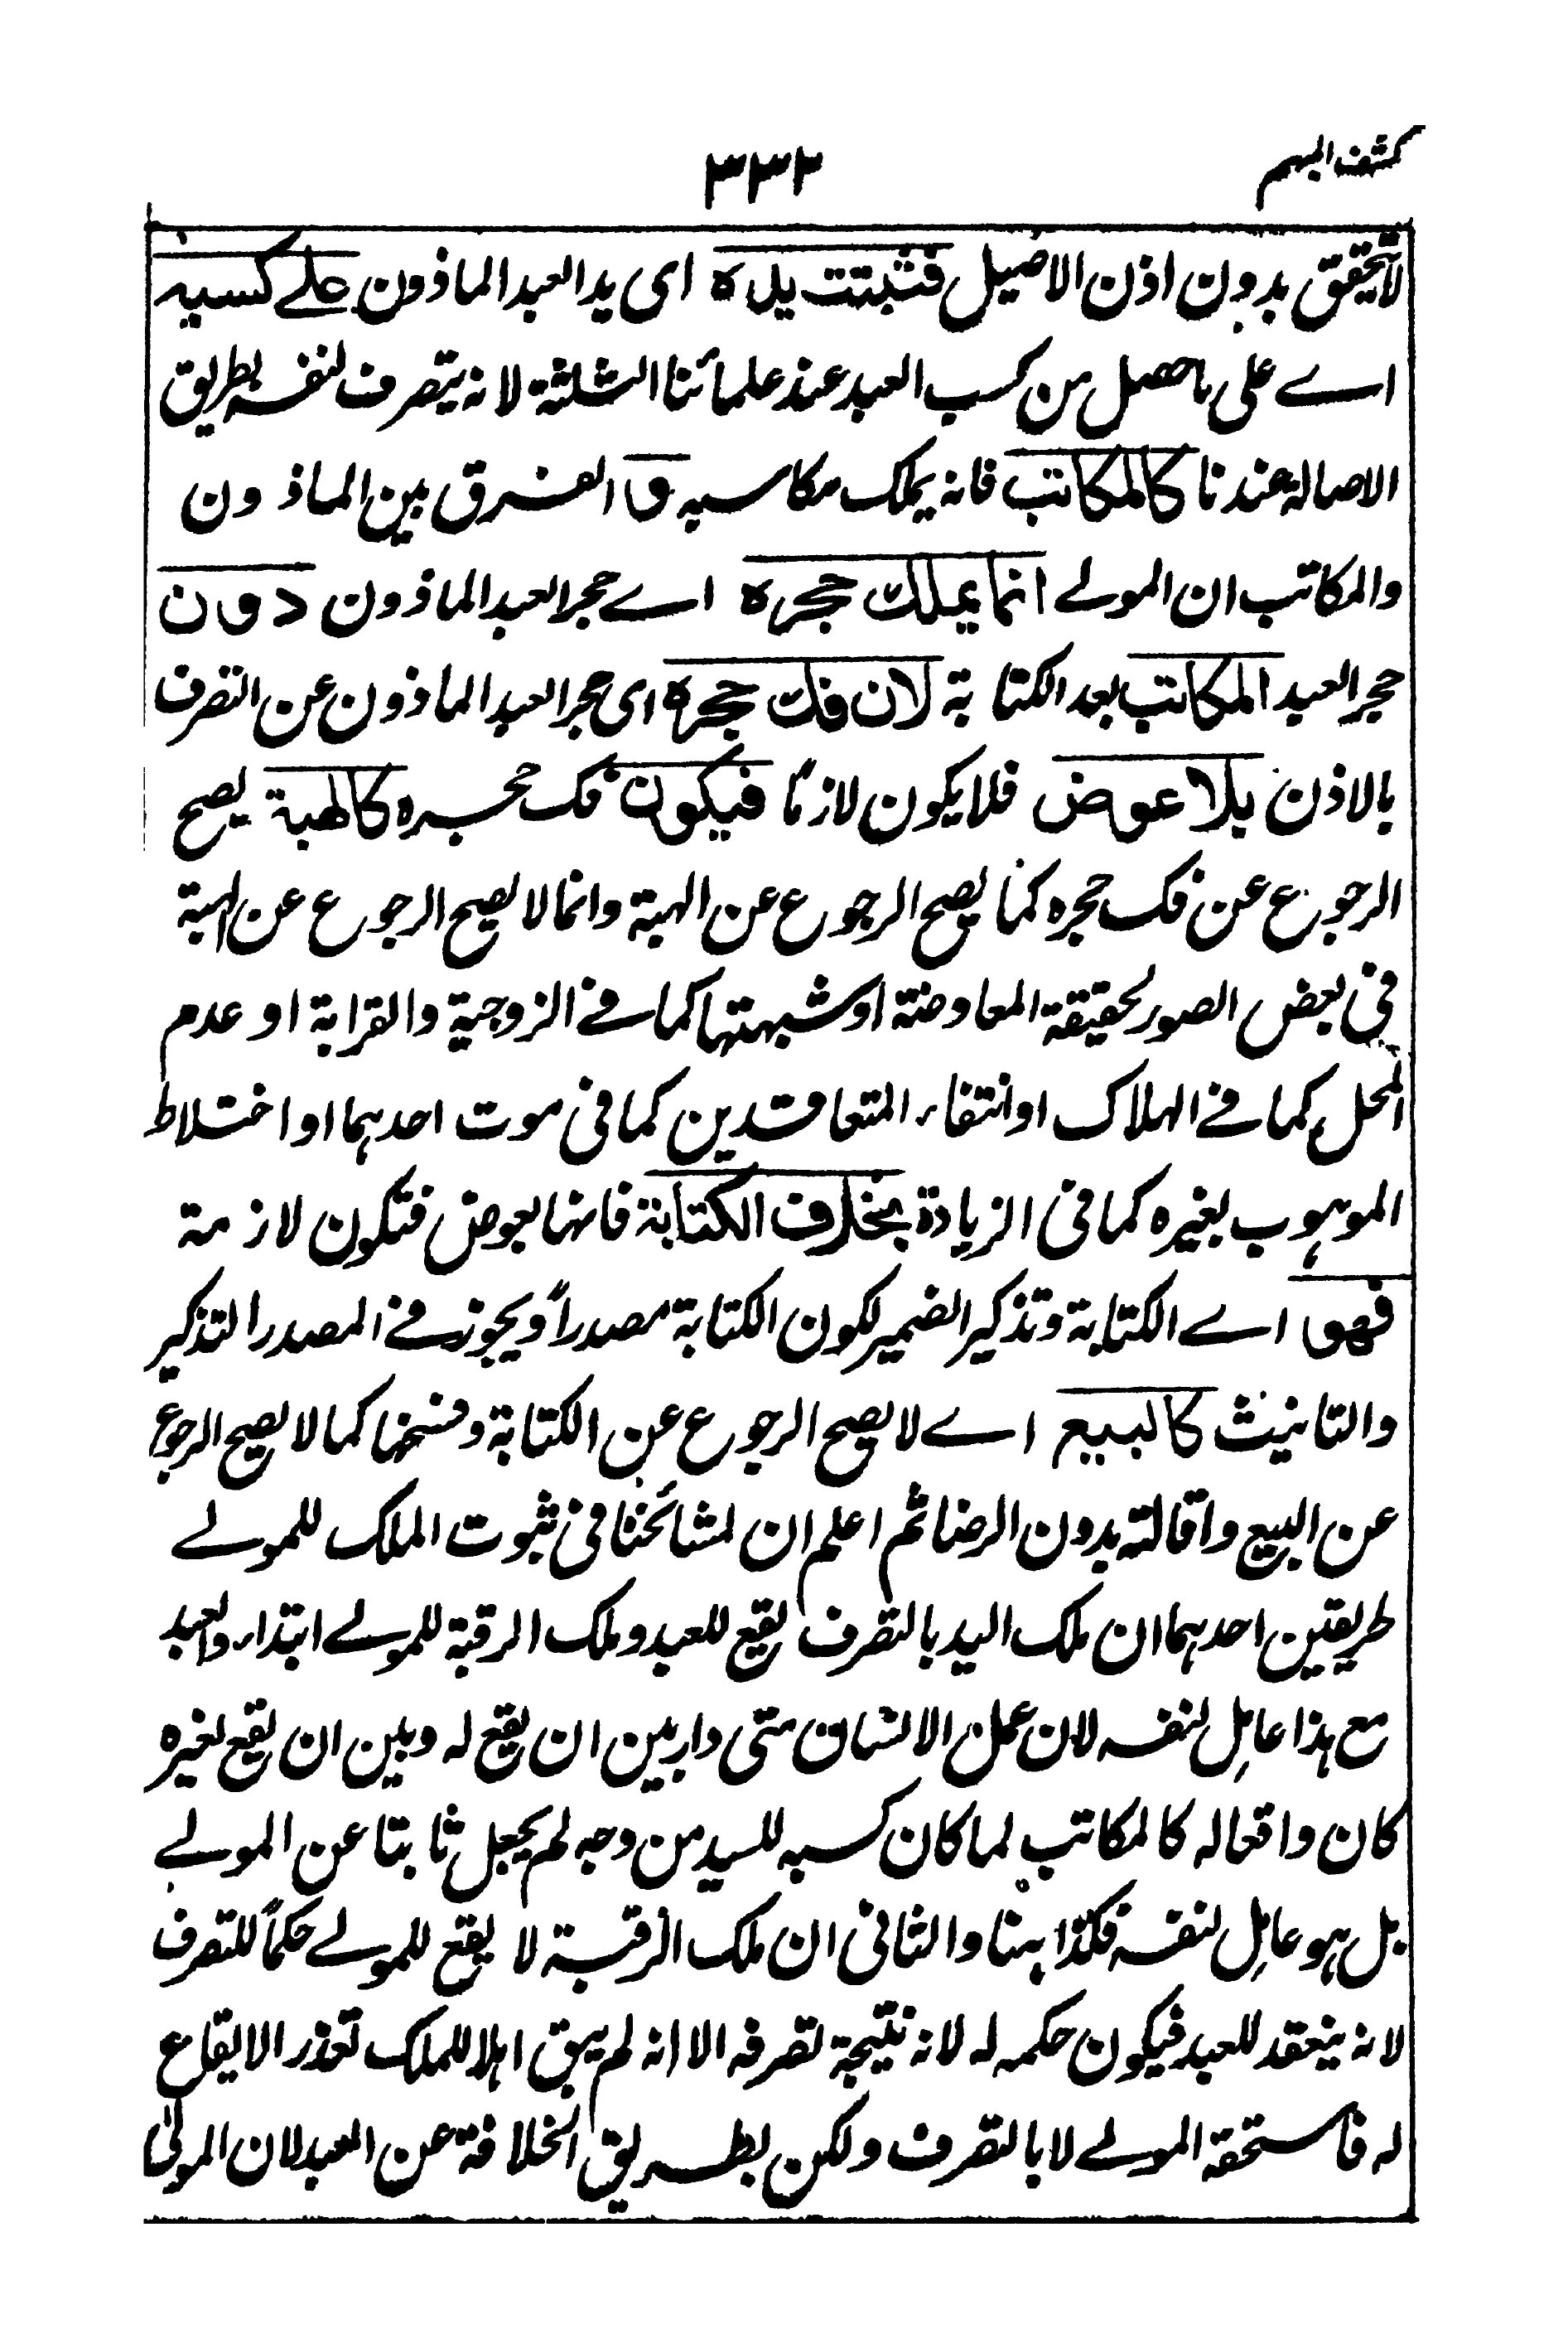 كشف المبهم
٣٣٢
لا يتحقق بدون اذن الاصيل فتثبت يده اى يد العبد الماذون علے كسبه
اے على ما حصل من كسب العبد عند علمائنا الثلثة لانه يتصرف لنفسه بطريق
الاصالة عندنا كالمكاتب فانه يملك مكاسبه و الفرق بين الماذون
والمكاتب ان المولے انما يملك حجره اے حجر العبد الماذون دون
حجر العبد المكاتب بعد الكتابة لان فك حجره اى حجر العبد الماذون عن التصرف
بالاذن بلا عوض فلا يكون لازمًا فيكون فك حجره كالهبة يصح
الرجوع عن فك حجره كما يصح الرجوع عن الهبة وانما لا يصح الرجوع عن الهبة
فى بعض الصور لحقيقة المعاوضة او شبهتها كما فے الزوجية والقرابة او عدم
المحل كما فے الهلاك او انتفاء المتعاقدين كما فى موت احدهما او اختلاط
الموهوب بغيره كما فى الزيادة بخلاف الكتابة فانها بعوض فتكون لازمة
فهو اے الكتابة وتذكير الضمير لكون الكتابة مصدراً ويجوز فے المصدر التذكير
والتانيث كالبيع اے لا يصح الرجوع عن الكتابة وفسخها كما لا يصح الرجوع
عن البيع واقالته بدون الرضا ثم اعلم ان لمشائخنا فى ثبوت الملك للمولے
طريقتين احدهما ان ملك اليد بالتصرف يقع للعبد وملك الرقبة للمولے ابتداء والعبد
مع هذا عامل لنفسه لان عمل الانسان متى دار بين ان يقع له وبين ان يقع لغيره
كان واقعا له كالمكاتب لما كان كسبه للسيد من وجه لم يجعل ثابتا عن المولے
بل هو عامل لنفسه فكذا هنا والثانى ان ملك الرقبة لا يقع للمولے حكماً للتصرف
لانه ينعقد للعبد فيكون حكمه له لانه نتيجة تصرفه الا انه لم يبق اهلا للملك تعذر الايقاع
له فاستحقه المولے لا بالتصرف ولكن بطريق الخلافة عن العبد لان المولىٰ